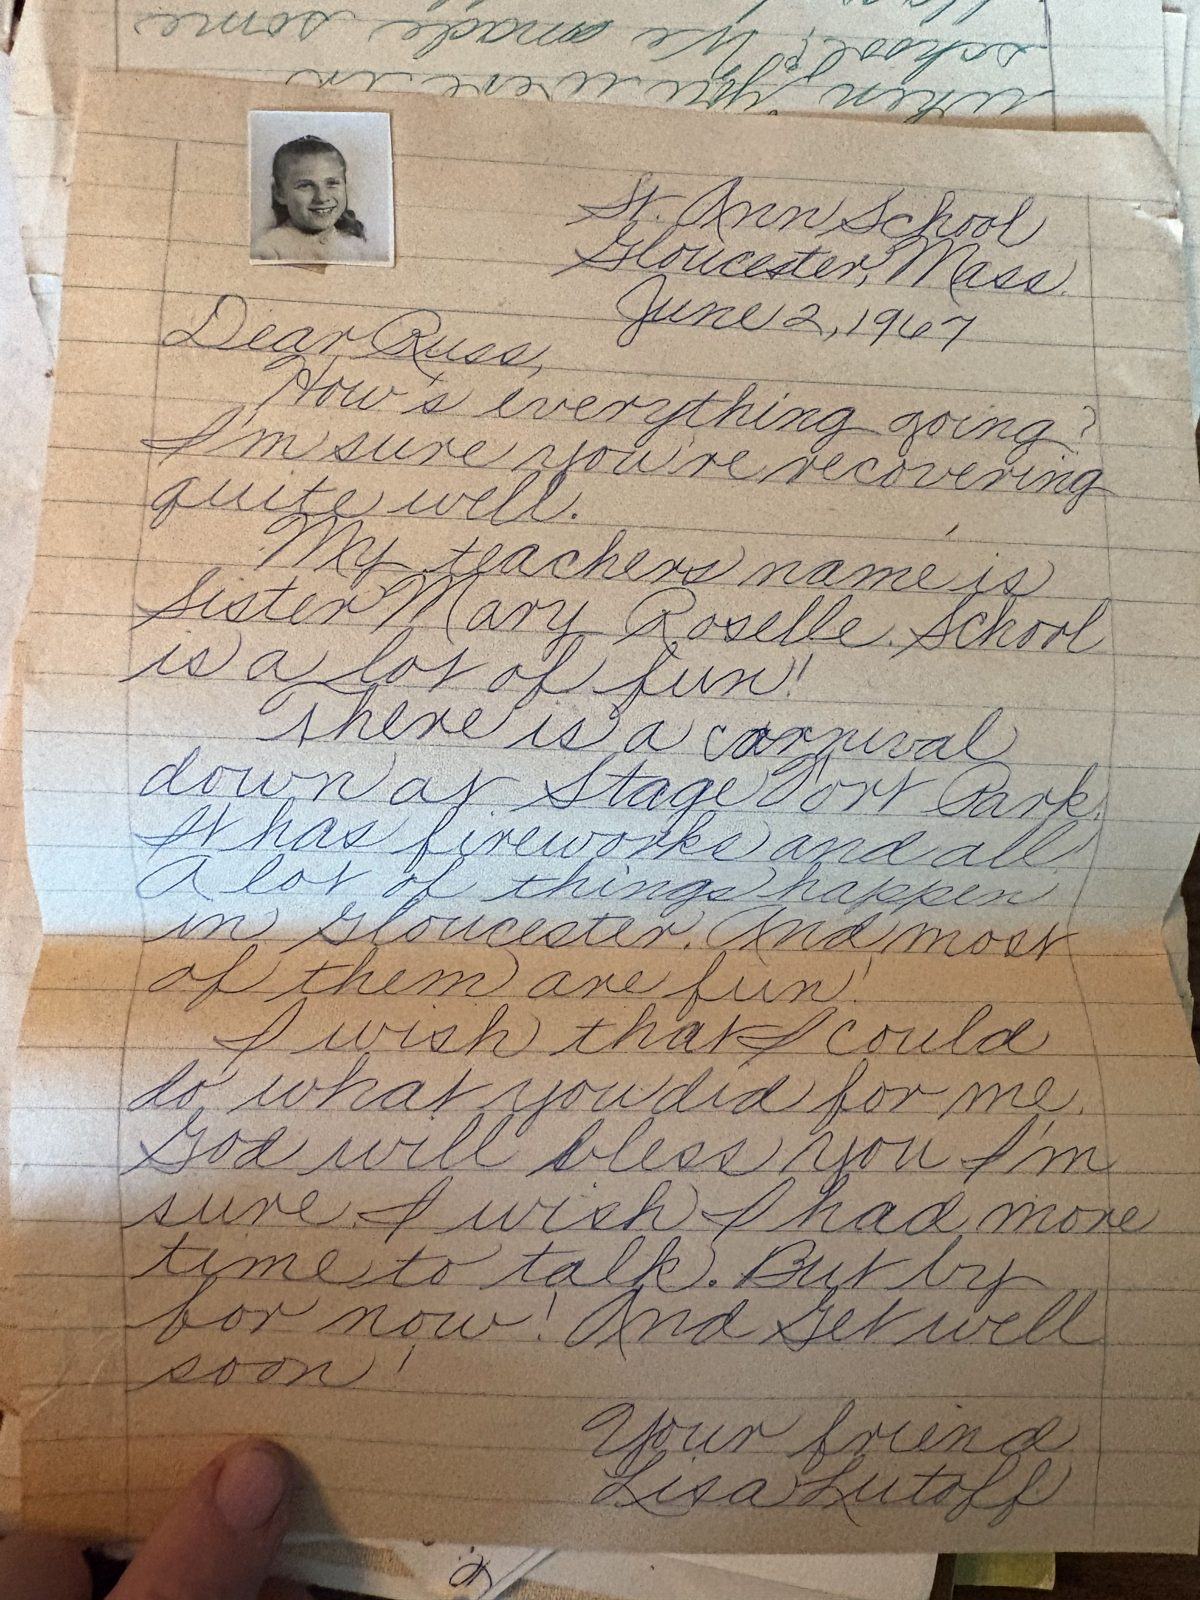 school? We made some
when you were in
St. Ann School
Gloucester, Mass.
June 2, 1967
Dear Russ,
How's everything going?
I'm sure you're recovering
quite well.
My teachers name is
Sister Mary Roselle. School
is a lot of fun!
There is a carnival
down at Stage Fort Park.
It has fireworks and all!
A lot of things happen
in Gloucester. And most
of them are fun!
I wish that I could
do what you did for me.
God will bless you I'm
sure. I wish I had more
time to talk. But by
for now! And get well
soon!
Your friend
Lisa Lutoff